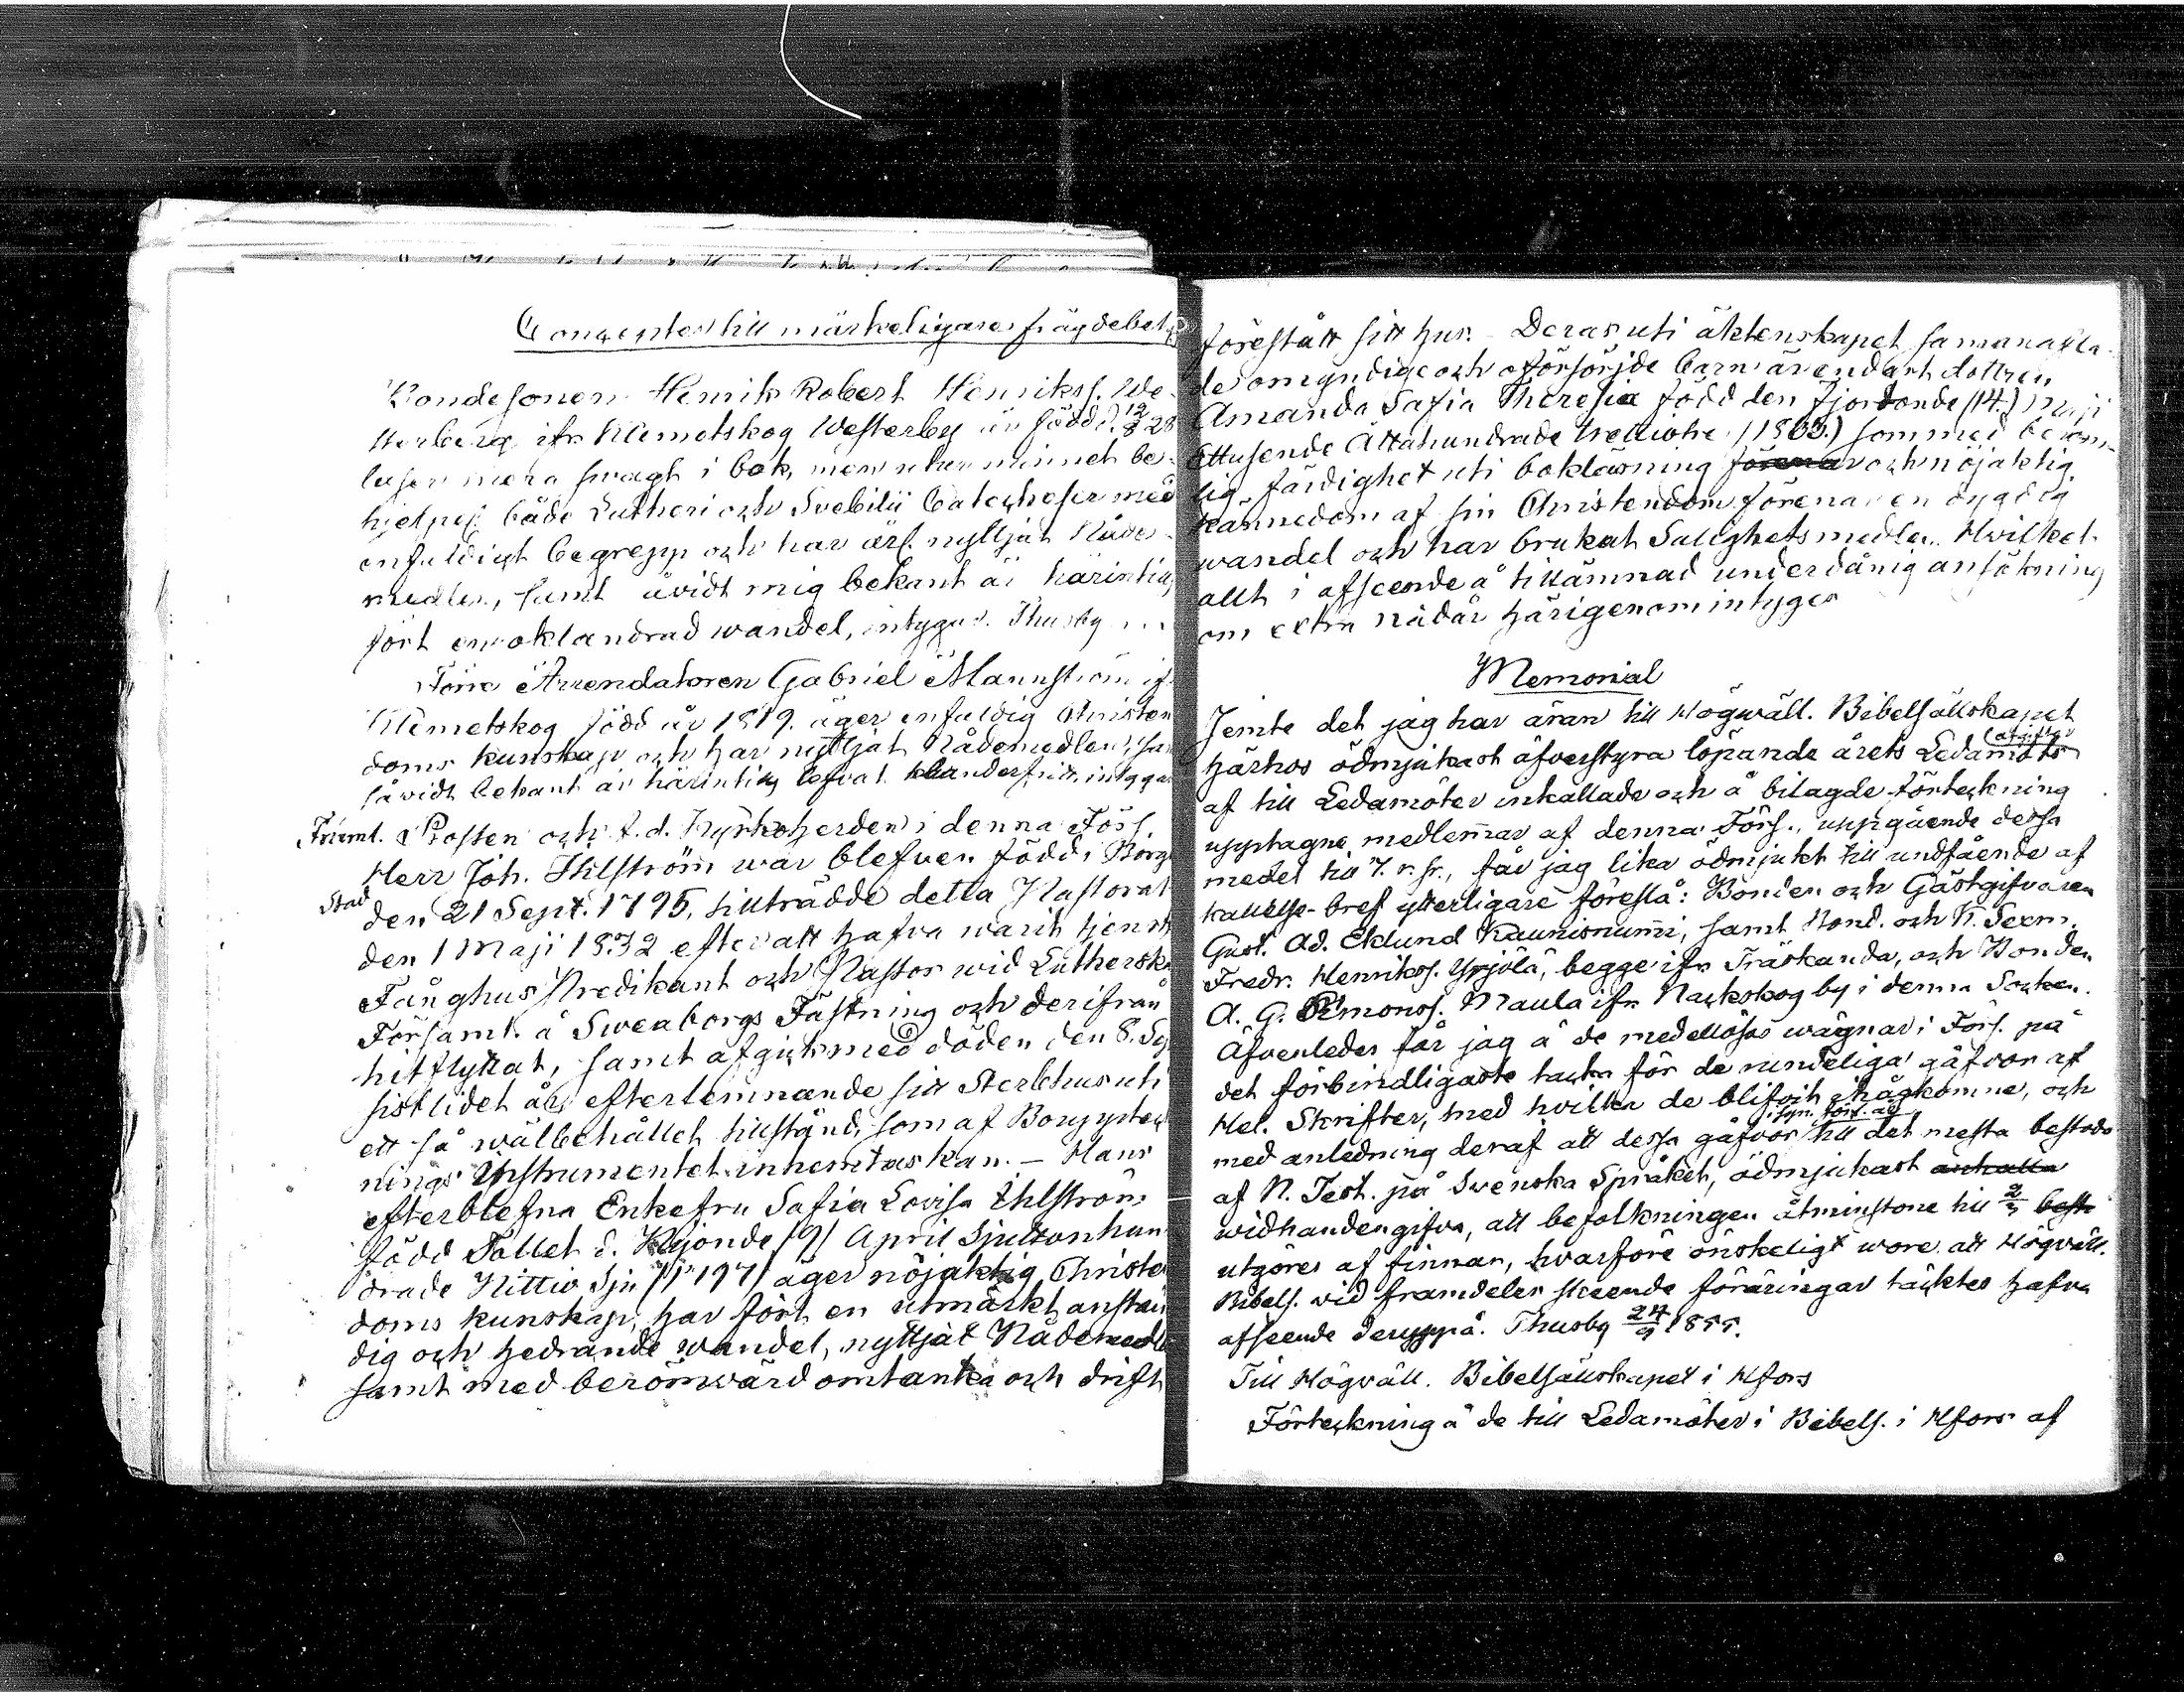 Concepter till märkeligare frägdebet
Bondesonen Henrik Robert Henrikss. We-
sterberg ifr. Klemetskog Westerby är född d. 12/8 28
läser mera swagt i bok, men utur minnet be-
hjelpel. både Lutheri och Svebilii Catecheser med
enfaldigt begrepp och har ärl. nyttjat Nåde-
medlen, samt såvidt mig bekant är härintills
fört en oklandrad wandel, intygas. Thusby ...
Förre Arrendatoren Gabriel Mannström ifr
Klemetskog född år 1819. äger enfaldig Christen
doms kunskap och har nyttjat Nådemedlen, sa
såvidt bekant är härintills lefvat klanderfritt, intygas
Framl. Prosten och f.d. Kyrkoherden i denna Förs.
Herr Joh. Ihlström war blefven född i Borgå
stad
den 21 Sept. 1795, tillträdde detta Pastorat
den 1 Maji 1832 efter att hafva warit tjenst
Fånghus Predikant och Pastor wid Lutherska
Församl. å Sweaborgs Fästning och derifrån
hitflyttat, samt afgick med döden den 8. Se
sistlidet år, efterlemnande sitt Sterbhus uti
ett så wälbehållet tillstånd, som af Bouppteck
nings Instrumentet inhemtas kan. — Hans
efterblefna Enkefru Safia Lovisa Ihlström
född Tallet d. Nijonde /9/ April Sjuttonhun
drade Nittio Sju /1797/ äger nöjaktig Christen
doms kunskap, har fört en utmärkt anstän
dig och hedrande wandel, nyttjat Nådemedle
samt med berömwärd omtanka och drift
förestått sitt hus. Deras uti äktenskapet samanafla-
de omyndige och oförsörjde barn är endast dottren
Amanda Safia Theresia född den Fjortonde (14.) Maji
Ettusende Åttahundrade trettiotre (1833.) som med beröm-
lig färdighet uti bokläsning förenar och nöjaktig
kännedom af sin Christendom förenar en dygdig
wandel och har brukat Salighetsmedlen. Hvilket
allt i afseende å tillämnad underdånig ansökning
om extra nådår härigenom intygas
Memorial
Jemte det jag har äran till Högwäll. Bibelsällskapet
afgifter
härhos ödmjukast öfverstyra löpande årets Ledamöts
af till Ledamöter inkallade och å bilagde förteckning
upptagne medlem̄ar af denna Förs., uppgående dessa
medel till 7. r. sr., får jag lika ödmjukt till undfående af
kallelse-bref ytterligare föreslå: Bonden och Gästgifvaren
Gust. Ad. Eklund Kaunisnum̄i, samt Nomd. och K. Sexm.
Fredr. Henrikss. Yrjölä, begge ifr. Träskanda, och Bonden
A. G. Simonss. Maula ifr. Nackskog by i denna Socken.
Äfvenledes får jag å de medellösas wägnar i Förs. på
det förbindligaste tacka för de rundeliga gåfvor af
Hel. Skrifter, med hvilka de blifvit ihågkomne, och
med anledning deraf att dessa gåfvor till det mesta bestodo
af N. Test. på Svenska Språket, ödmjukast anhålla
widhandengifva, att befolkningen åtminstone till 2/3 best
utgöres af finnar, hvarföre önskeligt wore att Högwäll.
Bibels. vid framdeles skeende föräringar täcktes hafva
afseende deruppå. Thusby 24/9 1855.
Till Högwäll. Bibelsällskapet i Hfors
Förteckning å de till Ledamöter i Bibels. i Hfors af